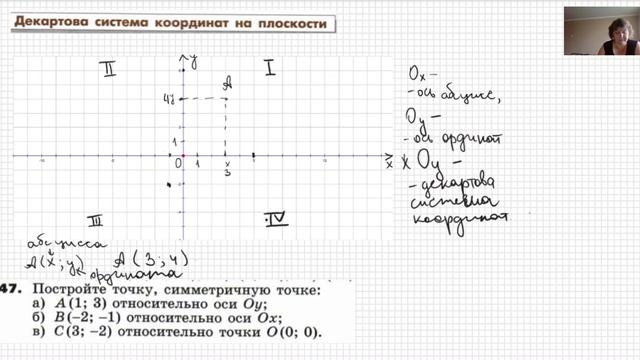 Декартова система координат на плоскости
II
y
I
4y
A
1
0
1
x
3
x
III
IV
Ox –
- ось абцисс,
Oy –
- ось ординат
x Oy –
- декартова
система
координат
абсцисса
A(x; y)
ордината
A(3; 4)
47. Постройте точку, симметричную точке:
а) A(1; 3) относительно оси Oy;
б) B(–2; –1) относительно оси Ox;
в) C(3; –2) относительно точки O(0; 0).